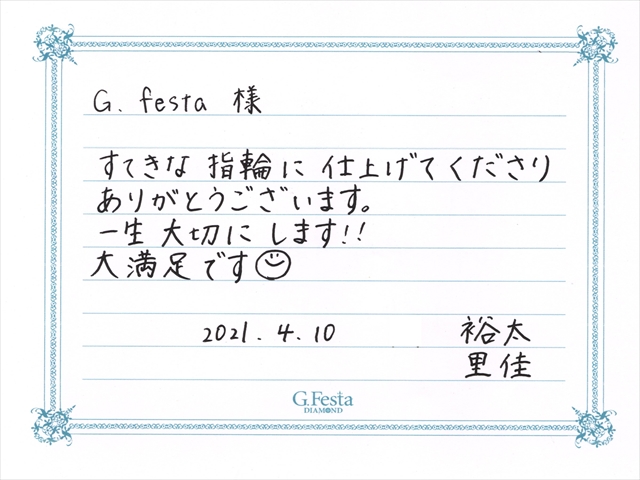 G. festa 様
すてきな 指輪に 仕上げてくださり
ありがとうございます。
一生 大切に します!!
大満足です☺
2021.4.10 裕太
里佳
G.Festa
DIAMOND